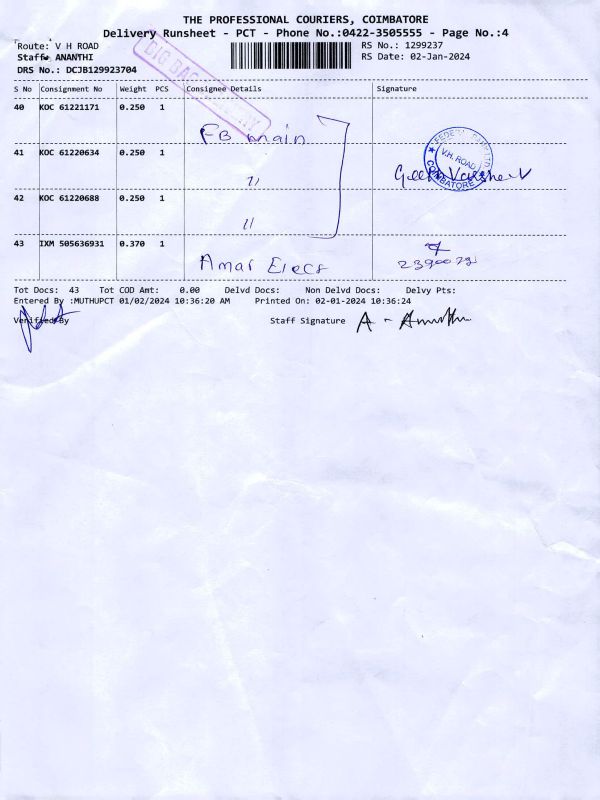 THE PROFESSIONAL COURIERS, COIMBATORE
Delivery Runsheet - PCT - Phone No.:0422-3505555 - Page No.:4
Route: V H ROAD
RS No.: 1299237
Staff: ANANTHI
RS Date: 02-Jan-2024
DRS No.: DCJB129923704
S No Consignment No Weight PCS Consignee Details Signature
40 KOC 61221171 0.250 1
FB main
41 KOC 61220634 0.250 1
FEDERAL BANK LTD
V.H. ROAD
COIMBATORE
42 KOC 61220688 0.250 1
43 IXM 505636931 0.370 1
Amar Elecs
Tot Docs: 43 Tot COD Amt: 0.00 Delvd Docs: Non Delvd Docs: Delvy Pts:
Entered By :MUTHUPCT 01/02/2024 10:36:20 AM Printed On: 02-01-2024 10:36:24
Verified By Staff Signature